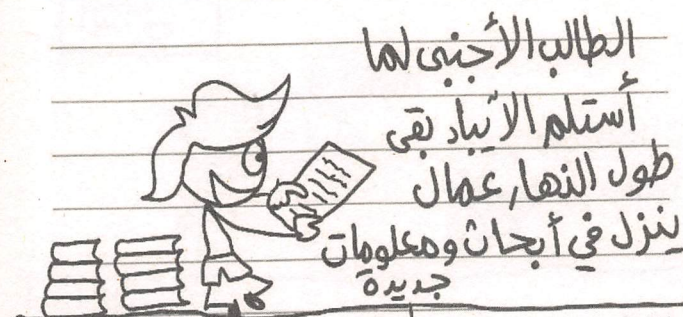 الطالب الأجنبى لما
أستلم الأيباد بقى
طول النهار عمال
ينزل في أبحاث ومعلومات
جديدة